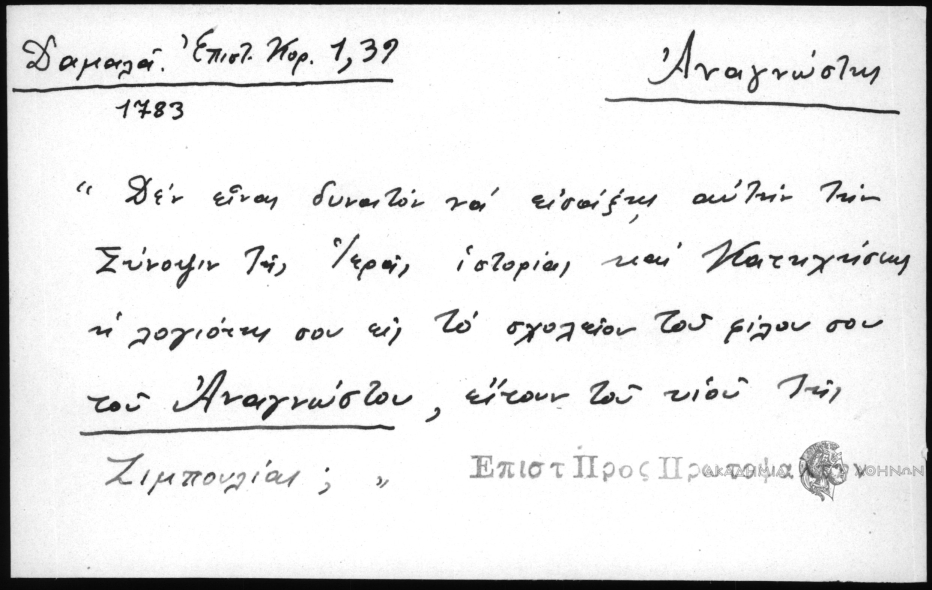 Δαμαλᾶ. Ἐπιστ. Κορ. 1, 39
Ἀναγνώστης
1783
“ Δέν εἶναι δυνατόν νά εἰσάξῃς αὐτήν τήν
Σύνοψιν τῆς Ἱερᾶς ἱστορίας καί Κατηχήσεως
ἡ λογιότης σου εἰς τό σχολεῖον τοῦ φίλου σου
τοῦ Ἀναγνώστου, εἴτουν τοῦ υἱοῦ τῆς
Ζιμπουλίας; ”
Επιστ Προς Πρωτοψαλτην
ΑΚΑΔΗΜΙΑ ΑΘΗΝΩΝ